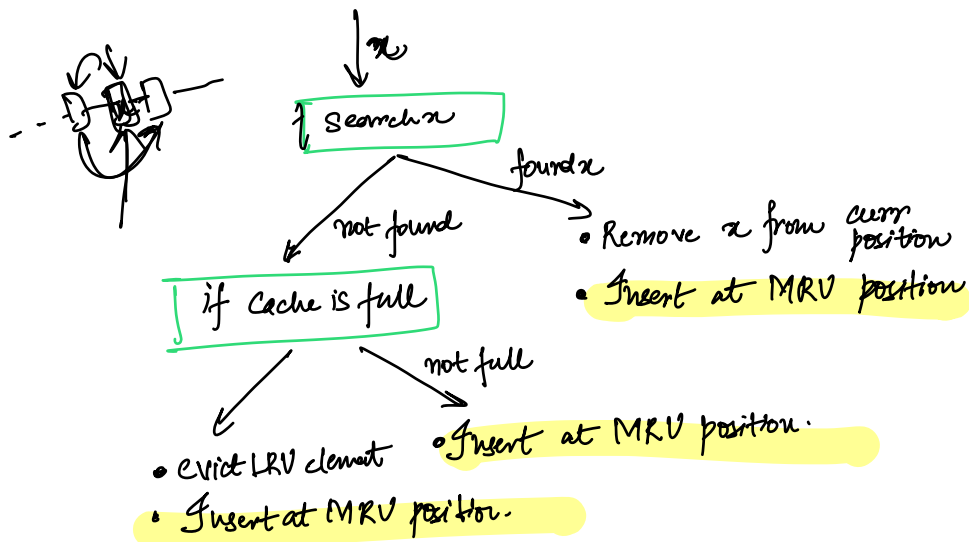 x
search x
found x
not found
• Remove x from curr
position
• Insert at MRU position
if cache is full
not full
• Insert at MRU position.
• evict LRU element
• Insert at MRU position.